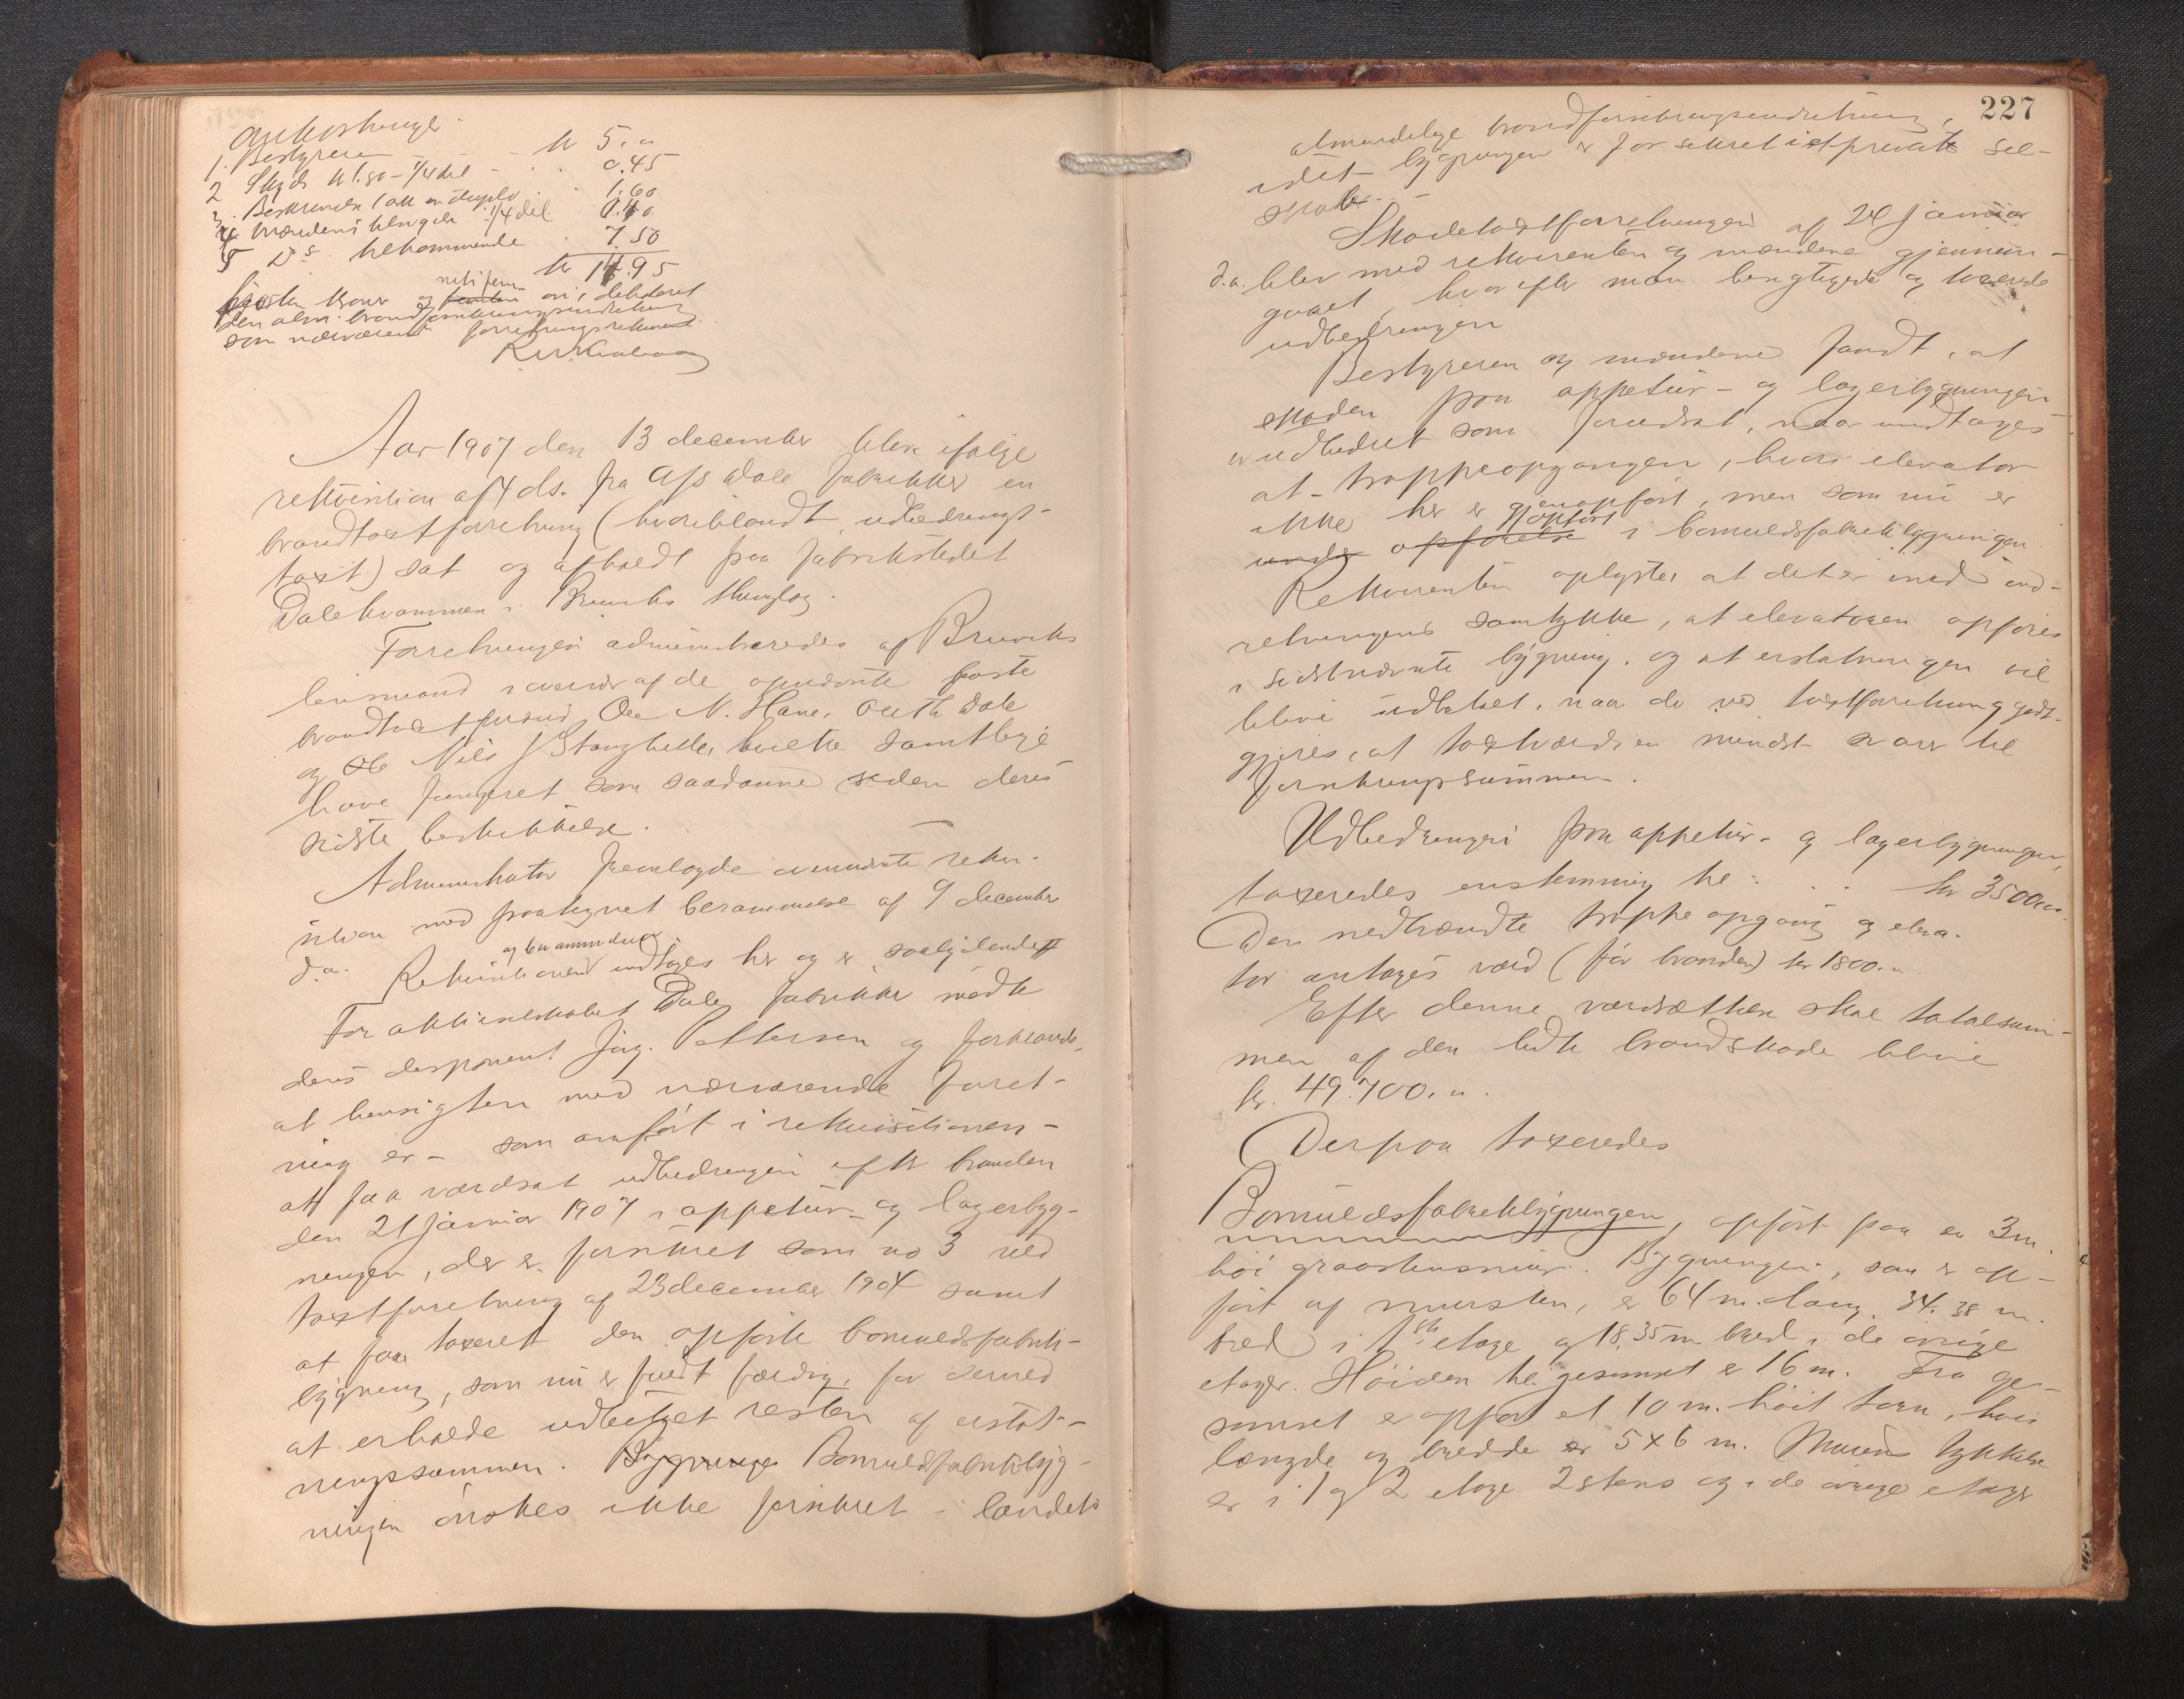 Omkostninger
1. Bestyreren kr 5. "
2 Skyds kr 1.80 - 1/4 del 0.45
3. Beskrivelse 1 ark in duplo 1.60
4 Mændenes klængde 1/4 del 0.40
5 Ds. tilkommende 7.50
kr 14.95
kroner og nitifem øre, debiteret
den alm. brandforsikringsindretning
som nærværende forretnings rekvirent.
Aar 1907 den 13 december blev ifølge
rekvisition af 4 ds. fra A/s Dale fabrikker en
brandtaxtforretning (hvoriblandt udbedrings-
taxt) sat og afholdt paa fabrikstedet
Dalekvammen i Bruviks thinglag.
Forretningen administreredes af Bruviks
lensmand i overvær af de opnævnte faste
brandtaxtmænd Ole N. Hane, Dale
og Nils J Stanghelle, hvilke samtlige
have fungeret som saadanne siden deres
sidste beskikkelse.
Administrator fremlagde ovennævnte rekvi-
sition med paategnet berammelse af 9 december
d.a. Rekvisitionen og berammelsen indtages her og er saalydende #
For aktieselskabet Dale fabrikker mødte
dens disponent Jørg. Pettersen og forklarede,
at hensigten med nærværende forret-
ning er - som anført i rekvisitionen -
at faa værdsat udbedringen efter branden
den 21 januar 1907 i appetur- og lagerbyg-
ningen, der er forsikret som no 3 ved
taxtforretning af 23 december 1904 samt
at faa taxeret den opførte bomuldsfabrik-
bygning, som nu er fuldt færdig, for derved
at erholde udbetalt resten af erstat-
ningssummen. Bygninge Bomuldsfabrikbyg-
ningen ønskes ikke forsikret i landets
227
almindelige brandforsikringsindretning,
idet bygningen er forsikret i et privat sel-
skab. -
Skadetaxtforretningen af 24 januar
d.a. blev med rekvirenten og mændene gjennem-
gaaet, hvorefter man besigtigede og taxerede
udbedringen
Bestyreren og mændene fandt, at
skaden paa appetur- og lagerbygningen
er udbedret som forudsat, naar undtages
at trappeopgangen, hvori elevator
ikke her er gjenopført, men som nu er
under opførelse gjopført i bomuldsfabrikbygningen.
Rekvirenten oplyste, at det er med ind-
retningens samtykke, at elevatoren opføres
i sidstnævnte bygning, og at erstatningen vil
blive udbetalt, naar det ved taxtforretning godt-
gjøres, at taxtværdien mindst svarer til
forsikringssummen.
Udbedringen paa appetur- og lagerbygningen,
taxeredes enstemmig til: . . kr 35000.
Den nedbrændte trappeopgang og eleva-
tor antages værd (før branden) kr 1800. "
Efter denne værdsættelse skal totalsum-
men af den lidte brandskade blive
kr. 49.700. ".
Derpaa taxeredes
Bomuldsfabrikbygningen, opført paa en 3 m.
høi graastensmur. Bygningen, som er op-
ført af mursten, er 64 m. lang, 34.38 m.
bred i 1ste etage og 18.35 m bred i de øvrige
etager. Høiden til gesimset er 16 m. Fra ge-
simset er opført et 10 m. høit taarn, hvis
længde og bredde er 5 x 6 m. Murens tykkelse
er i 1 og 2 etage 2 stens og i de øvrige etager